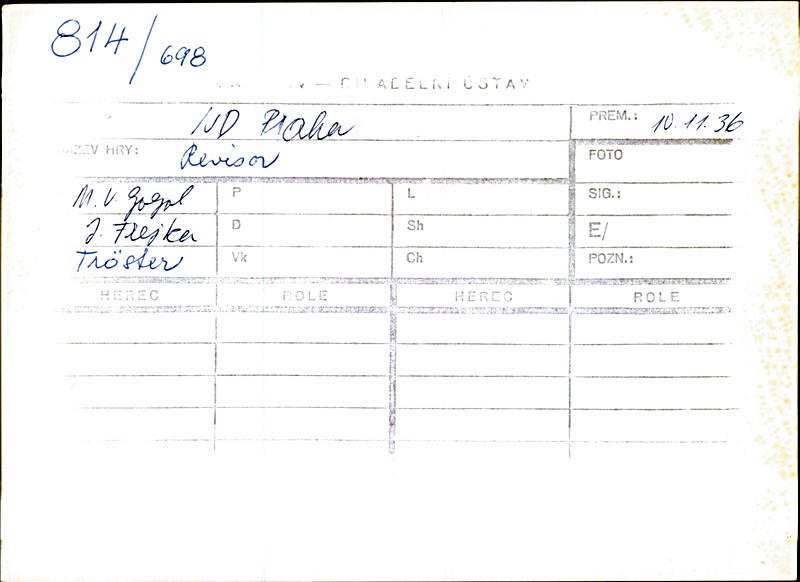 814/698
DIVADELNÍ ÚSTAV
ND Praha PREM.: 10.11.36
ZEV HRY: Revisor FOTO
N. V. Gogol P L SIG.:
J. Frejka D Sh E/
Tröster Vk Ch POZN.:
HEREC ROLE HEREC ROLE